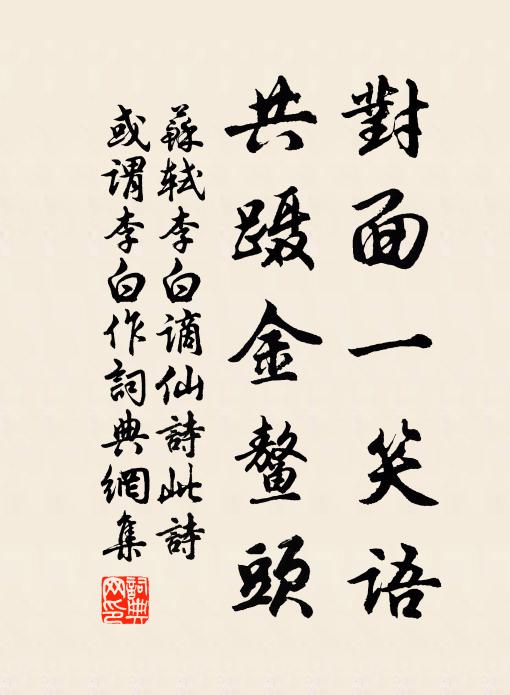 對面一笑語
共蹑金鳌頭
蘇軾李白謫仙詩此詩
或謂李白作詞典網集
詞典网印